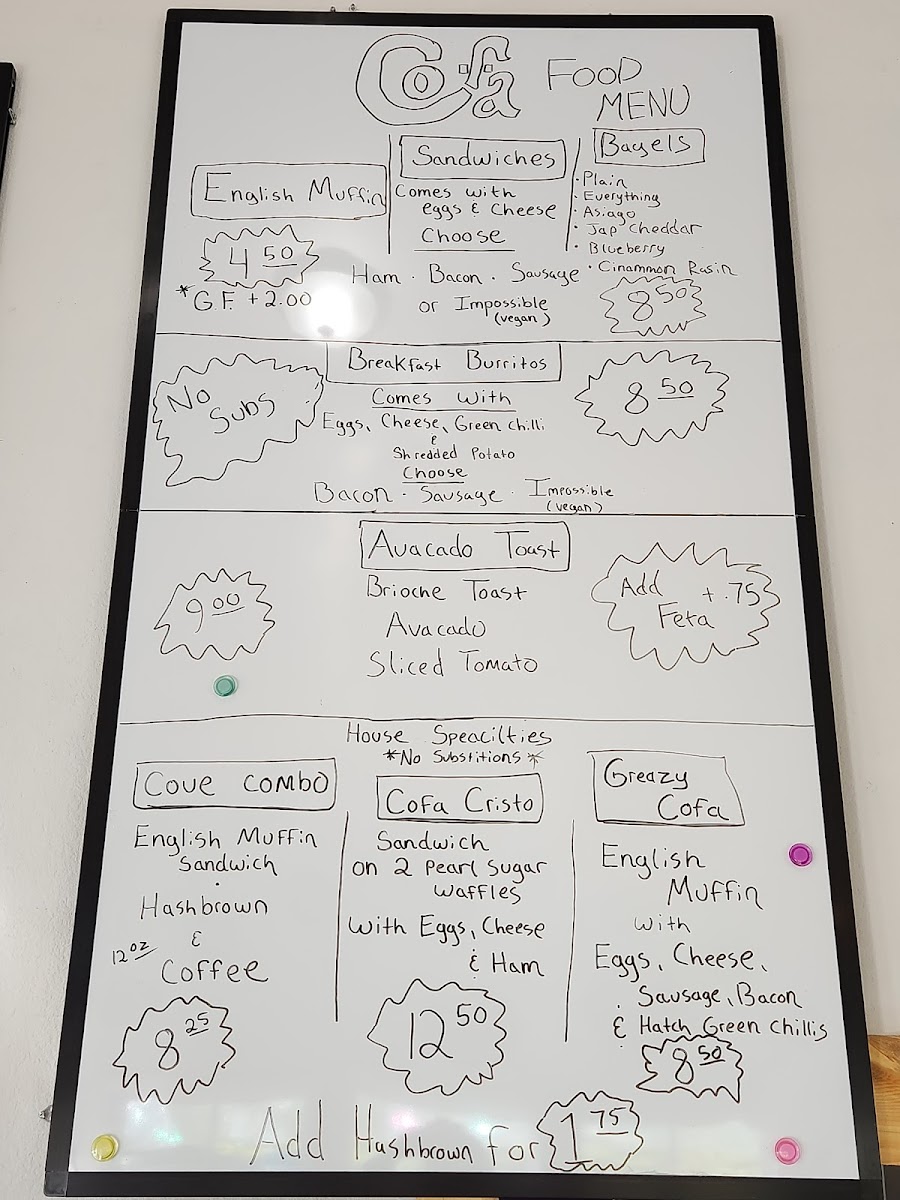 Cofa FOOD
MENU
English Muffin
4 50
*G.F. +2.00
Sandwiches
Comes with
eggs & Cheese
Choose
Ham · Bacon · Sausage
or Impossible
(vegan)
Bagels
· Plain
· Everything
· Asiago
· Jap Cheddar
· Blueberry
· Cinammon Rasin
8 50
No
Subs
Breakfast Burritos
Comes With
Eggs, Cheese, Green chilli
&
Shredded Potato
Choose
Bacon · Sausage · Impossible
(vegan)
8 50
Avacado Toast
9 00
Brioche Toast
Avacado
Sliced Tomato
Add + .75
Feta
House Speacilties
*No Substitions*
Cove Combo
English Muffin
Sandwich
Hashbrown
&
12 oz
Coffee
8 25
Cofa Cristo
Sandwich
on 2 Pearl Sugar
waffles
with Eggs, Cheese
& Ham
12 50
Greazy
Cofa
English
Muffin
with
Eggs, Cheese,
Sausage, Bacon
& Hatch Green Chillis
8 50
Add Hashbrown for 1 75